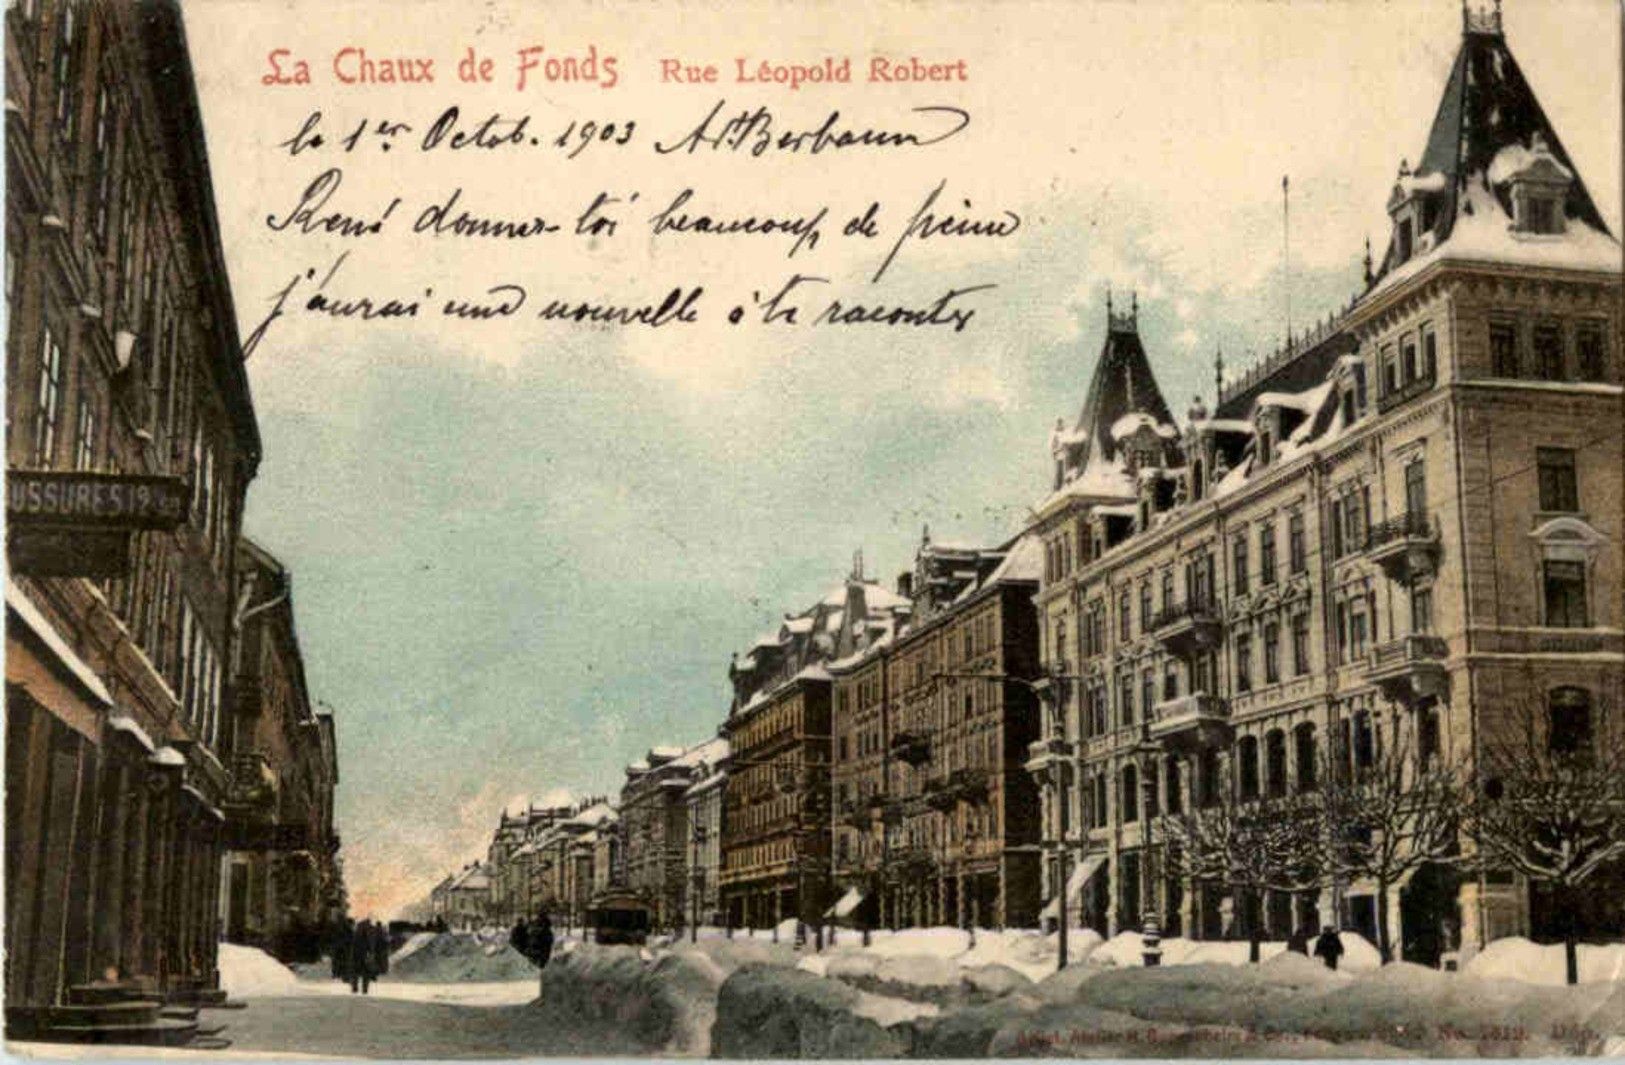 La Chaux de Fonds Rue Léopold Robert
le 1er Octob. 1903
René donnes-toi beaucoup de peine
j'aurai une nouvelle à te raconter
USSURES 12
No. 1812. Dép.